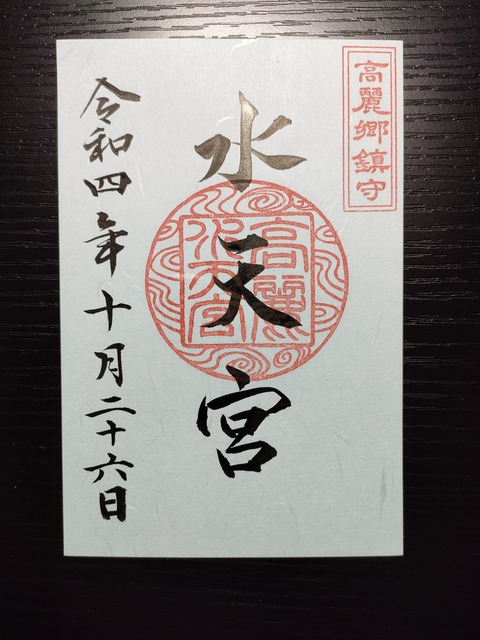 高麗郷鎮守
水天宮
高麗水天宮
令和四年十月二十六日